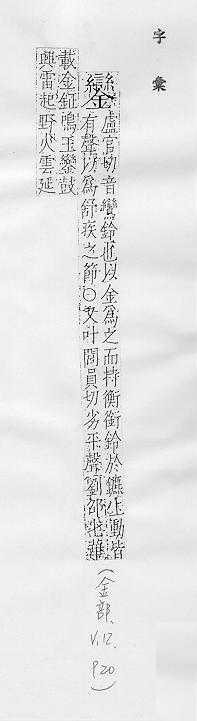 字彙
鑾
盧官切音鸞鈴也以金為之而持衡銜鈴於鑣上動皆
有聲以為舒疾之節〇又叶閭員切劣平聲劉邵難
載金鉦鳴玉鑾鼓
興雷起野火雲延
(金部、V.12、P20)